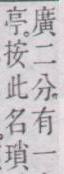 廣二分有一
亭。按此名瑣